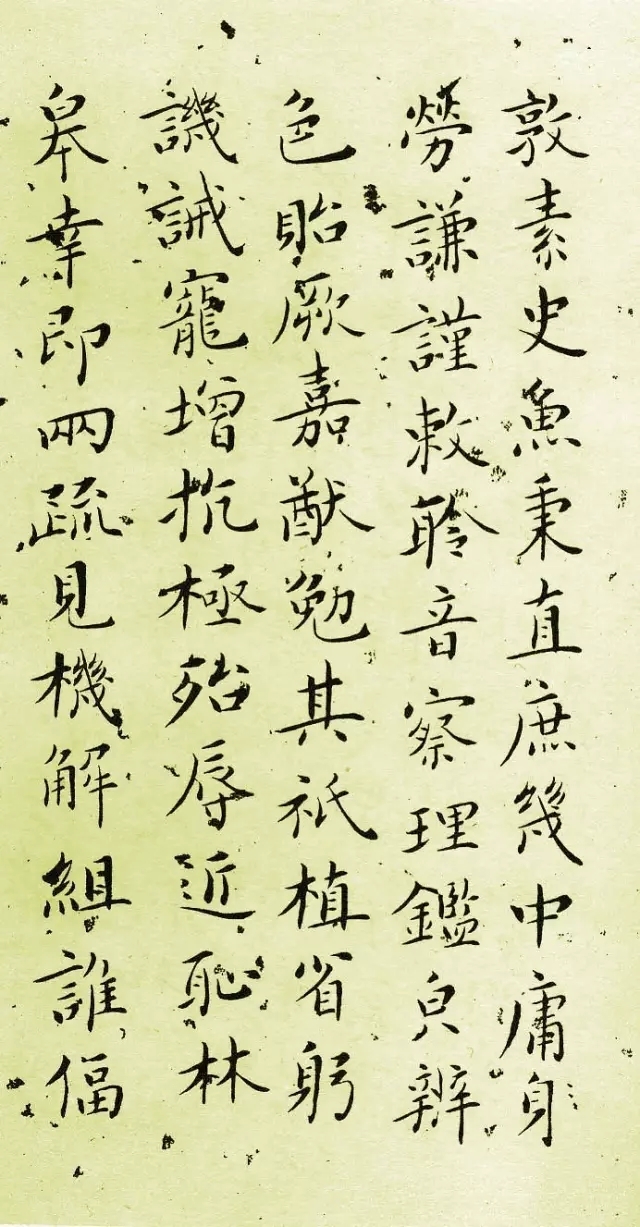 敦素史魚秉直庶幾中庸身
勞謙謹敕聆音察理鑑皃辨
色貽厥嘉猷勉其祗植省躬
譏誡寵增抗極殆辱近恥林
皋幸即兩疏見機解組誰偪